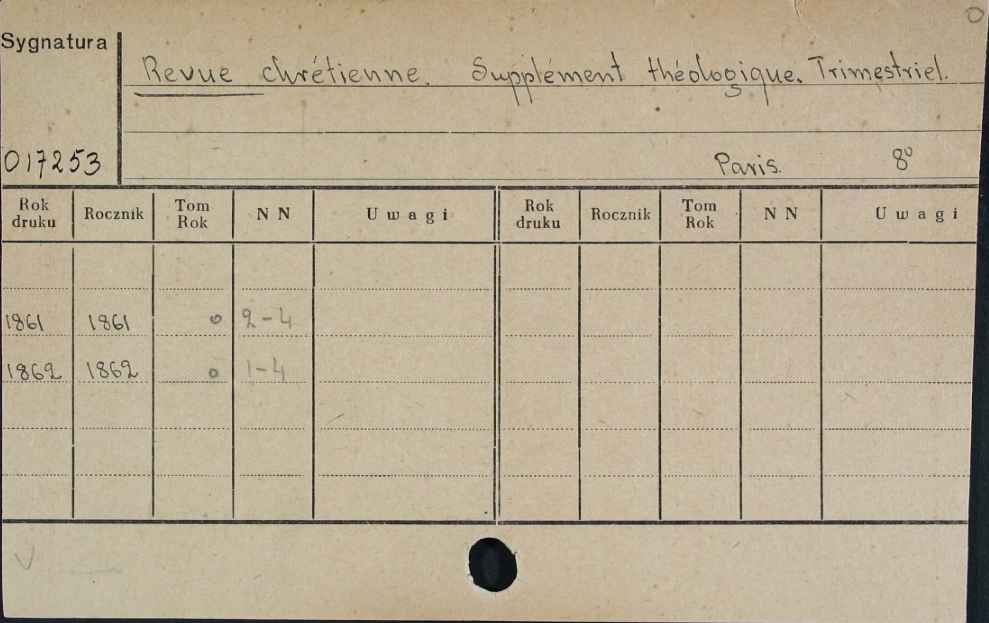 Sygnatura
Revue chrétienne. Supplément théologique. Trimestriel.
017253
Paris. 8º
Rok druku Rocznik Tom Rok N N Uwagi Rok druku Rocznik Tom Rok N N Uwagi
1861 1861 o 2-4
1862 1862 o 1-4